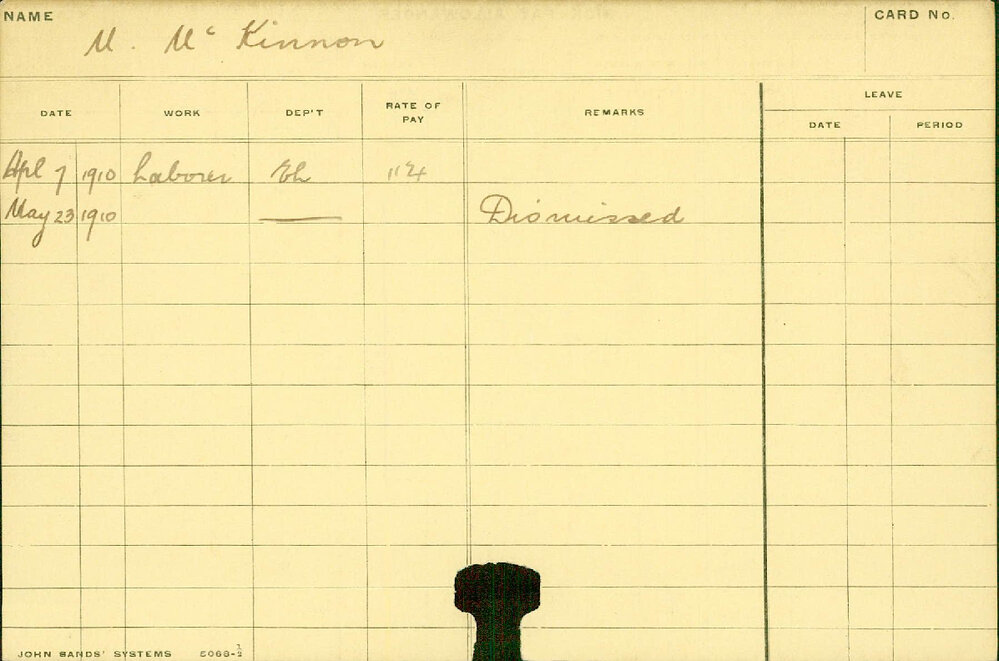 NAME
M. McKinnon
CARD No.
DATE WORK DEP'T RATE OF PAY REMARKS LEAVE
DATE PERIOD
Apl 7 1910 Laborer
May 23 1910 — Dismissed
JOHN SANDS' SYSTEMS 5068-½